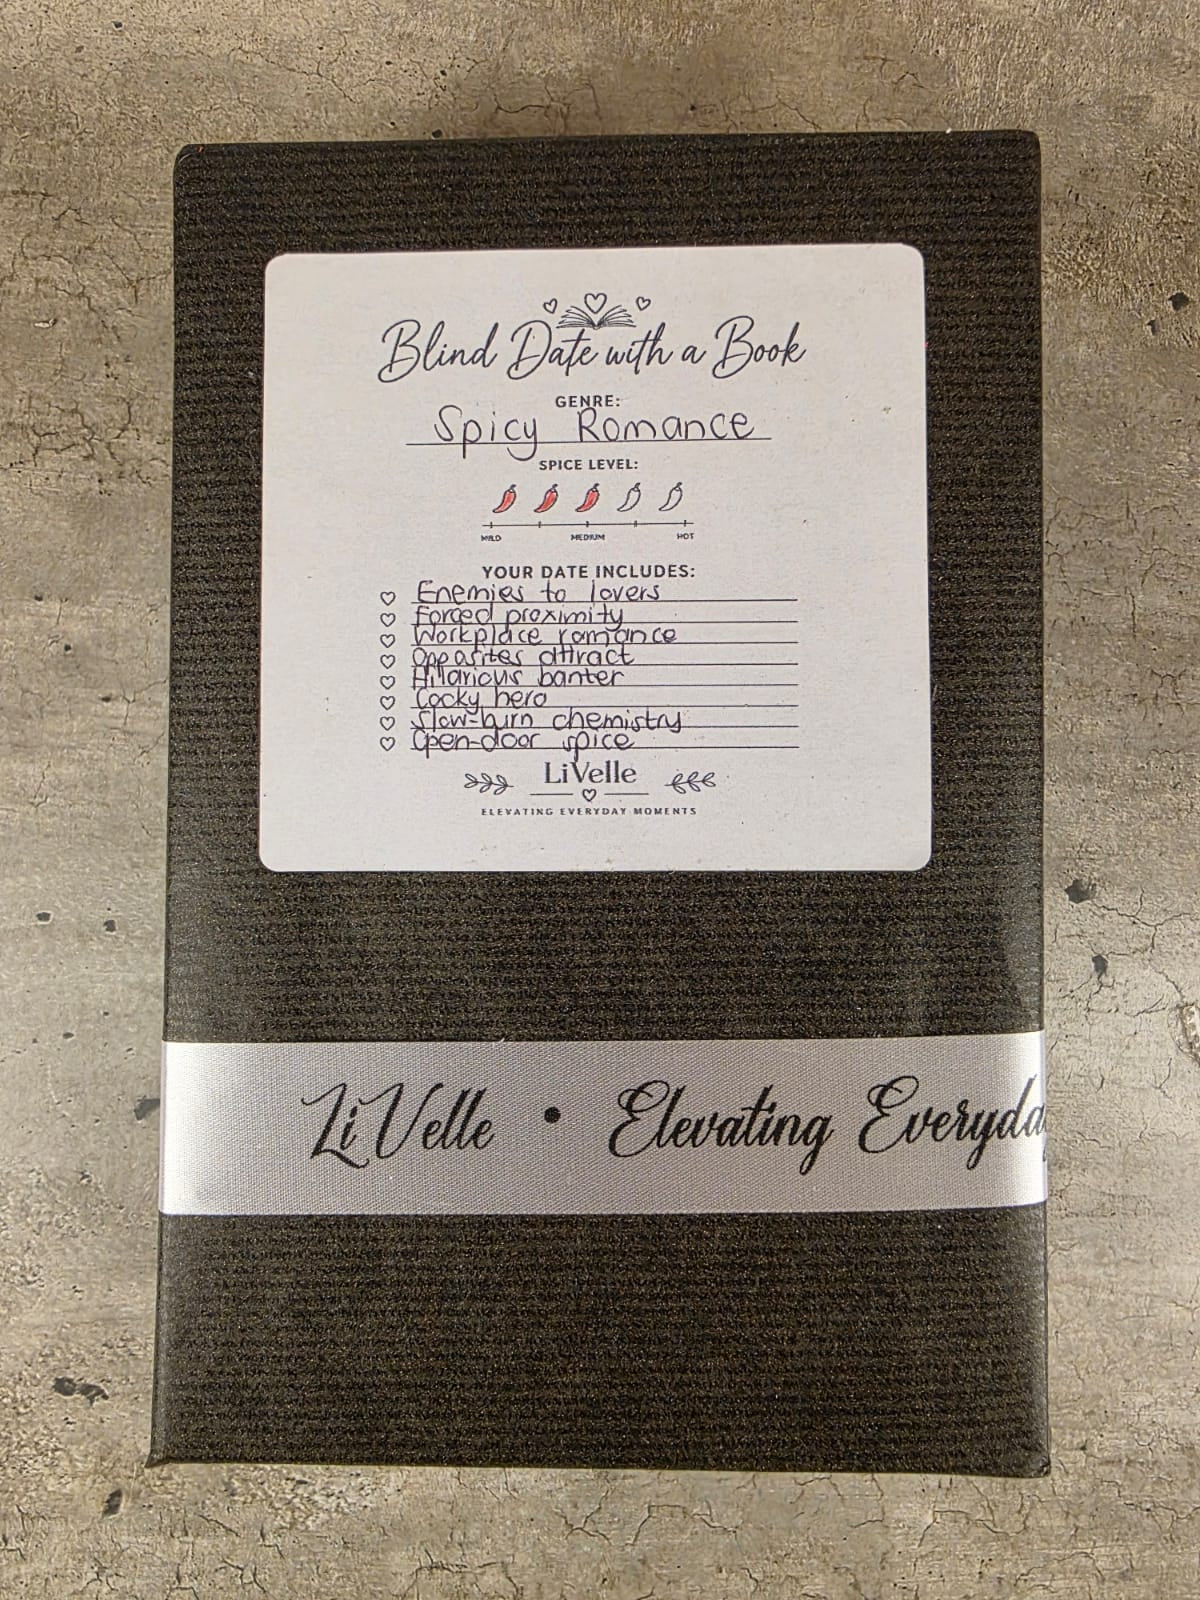 Blind Date with a Book
GENRE:
Spicy Romance
SPICE LEVEL:
MILD MEDIUM HOT
YOUR DATE INCLUDES:
Enemies to lovers
Forced proximity
Workplace romance
Opposites attract
Hilarious banter
Cocky hero
Slow-burn chemistry
Open-door spice
LiVelle
ELEVATING EVERYDAY MOMENTS
LiVelle • Elevating Everyda